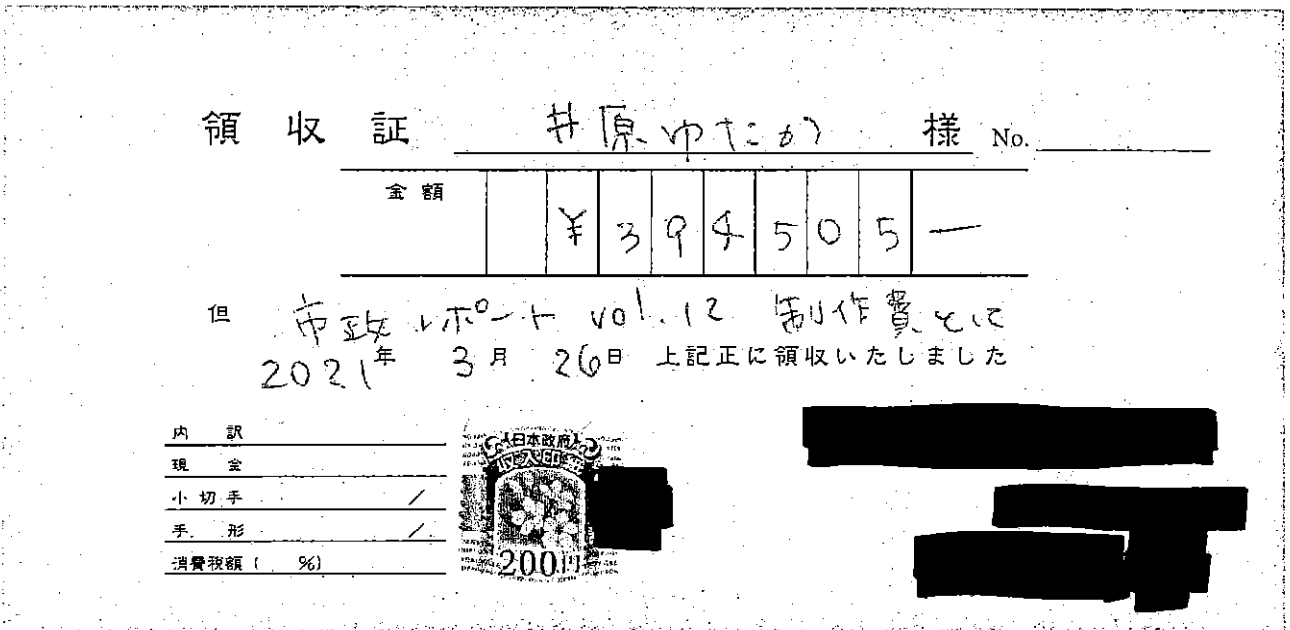 領収証 井原ゆたか 様 No.
金額 ¥394505－
但 市政レポート vol.12 制作費として
2021年 3月 26日 上記正に領収いたしました
内訳
現金
小切手 /
手形 /
消費税額( %)
日本政府
収入印紙
200円